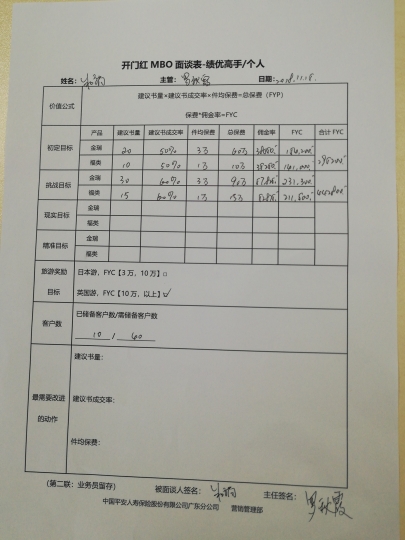 开门红 MBO 面谈表-绩优高手/个人
姓名: 主管: 日期: 2018.11.18.
价值公式 建议书量×建议书成交率×件均保费=总保费（FYP）
保费*佣金率=FYC
产品 建议书量 建议书成交率 件均保费 总保费 佣金率 FYC 合计 FYC
初定目标 金瑞 20 50% 3万
福类 10 50% 1万
挑战目标 金瑞 30 60% 3万 90万
福类 15 60% 1万 15万
现实目标 金瑞
福类
精准目标 金瑞
福类
旅游奖励 日本游，FYC【3万，10万】□
目标 英国游，FYC【10万，以上】☑
客户数 已储备客户数/需储备客户数
10 / 60
建议书量：
最需要改进 建议书成交率：
的动作
件均保费：
（第二联：业务员留存） 被面谈人签名： 主任签名：
中国平安人寿保险股份有限公司广东分公司 营销管理部